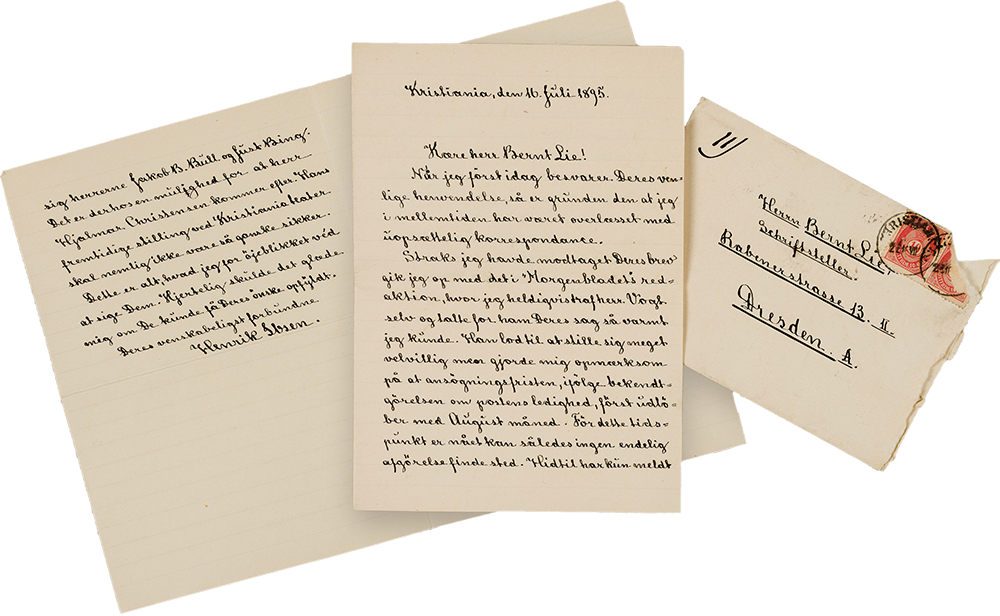 Kristiania, den 16. juli 1895.
Kære herr Bernt Lie!
Når jeg först idag besvarer Deres ven-
lige henvendelse, så er grunden den at jeg
i mellemtiden har været overlæsset med
uopsættelig korrespondance.
Straks jeg havde modtaget Deres brev
gik jeg op med det i "Morgenbladet"s red-
aktion, hvor jeg heldigvis traf herr Vogt
selv og talte for ham Deres sag så varmt
jeg kunde. Han lod til at stille sig meget
velvillig men gjorde mig opmærksom
på at ansøgningsfristen, ifölge bekendt-
görelsen om postens ledighed, först udlö-
ber med August måned. För dette tids-
punkt er nået kan således ingen endelig
afgörelse finde sted. Hidtil har kun meldt
sig herrerne Jakob B. Bull og Just Bing.
Det er derhos en mulighed for at herr
Hjalmar Christensen kommer efter. Hans
fremtidige stilling ved Kristiania teater
skal nemlig ikke være så ganske sikker.
Dette er alt, hvad jeg for öjeblikket véd
at sige Dem. Hjertelig skulde det glæde
mig om De kunde få Deres önske opfyldt.
Deres venskabeligst forbundne
Henrik Ibsen.
11
Herrn Bernt Lie,
Schriftsteller.
Rabenerstrasse 13. II.
Dresden. A.